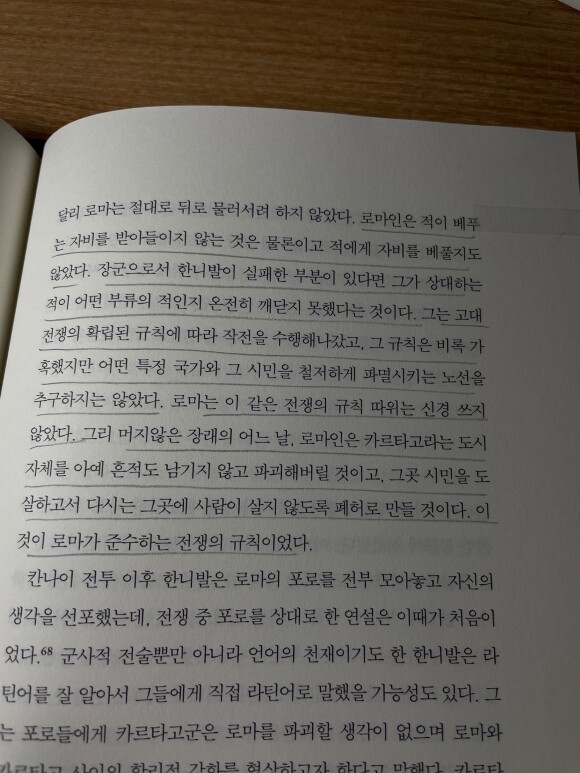 달리 로마는 절대로 뒤로 물러서려 하지 않았다. 로마인은 적이 베푸
는 자비를 받아들이지 않는 것은 물론이고 적에게 자비를 베풀지도
않았다. 장군으로서 한니발이 실패한 부분이 있다면 그가 상대하는
적이 어떤 부류의 적인지 온전히 깨닫지 못했다는 것이다. 그는 고대
전쟁의 확립된 규칙에 따라 작전을 수행해나갔고, 그 규칙은 비록 가
혹했지만 어떤 특정 국가와 그 시민을 철저하게 파멸시키는 노선을
추구하지는 않았다. 로마는 이 같은 전쟁의 규칙 따위는 신경 쓰지
않았다. 그리 머지않은 장래의 어느 날, 로마인은 카르타고라는 도시
자체를 아예 흔적도 남기지 않고 파괴해버릴 것이고, 그곳 시민을 도
살하고서 다시는 그곳에 사람이 살지 않도록 폐허로 만들 것이다. 이
것이 로마가 준수하는 전쟁의 규칙이었다.
칸나이 전투 이후 한니발은 로마의 포로를 전부 모아놓고 자신의
생각을 선포했는데, 전쟁 중 포로를 상대로 한 연설은 이때가 처음이
었다.68 군사적 전술뿐만 아니라 언어의 천재이기도 한 한니발은 라
틴어를 잘 알아서 그들에게 직접 라틴어로 말했을 가능성도 있다. 그
는 포로들에게 카르타고군은 로마를 파괴할 생각이 없으며 로마와
카르타고 사이의 합리적 강화를 협상하고자 한다고 말했다. 카르타